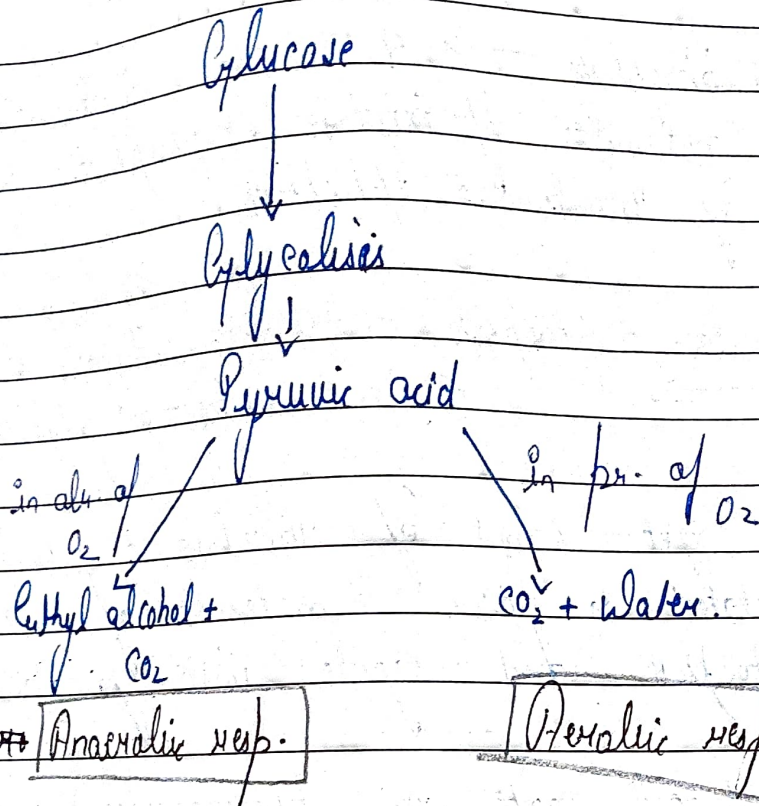 Glucose
Glycolisis
Pyruvic acid
in abs. of
O2
in pr. of
O2
Ethyl alcohol +
CO2
CO2 + Water.
Anaerobic resp.
Aerobic resp